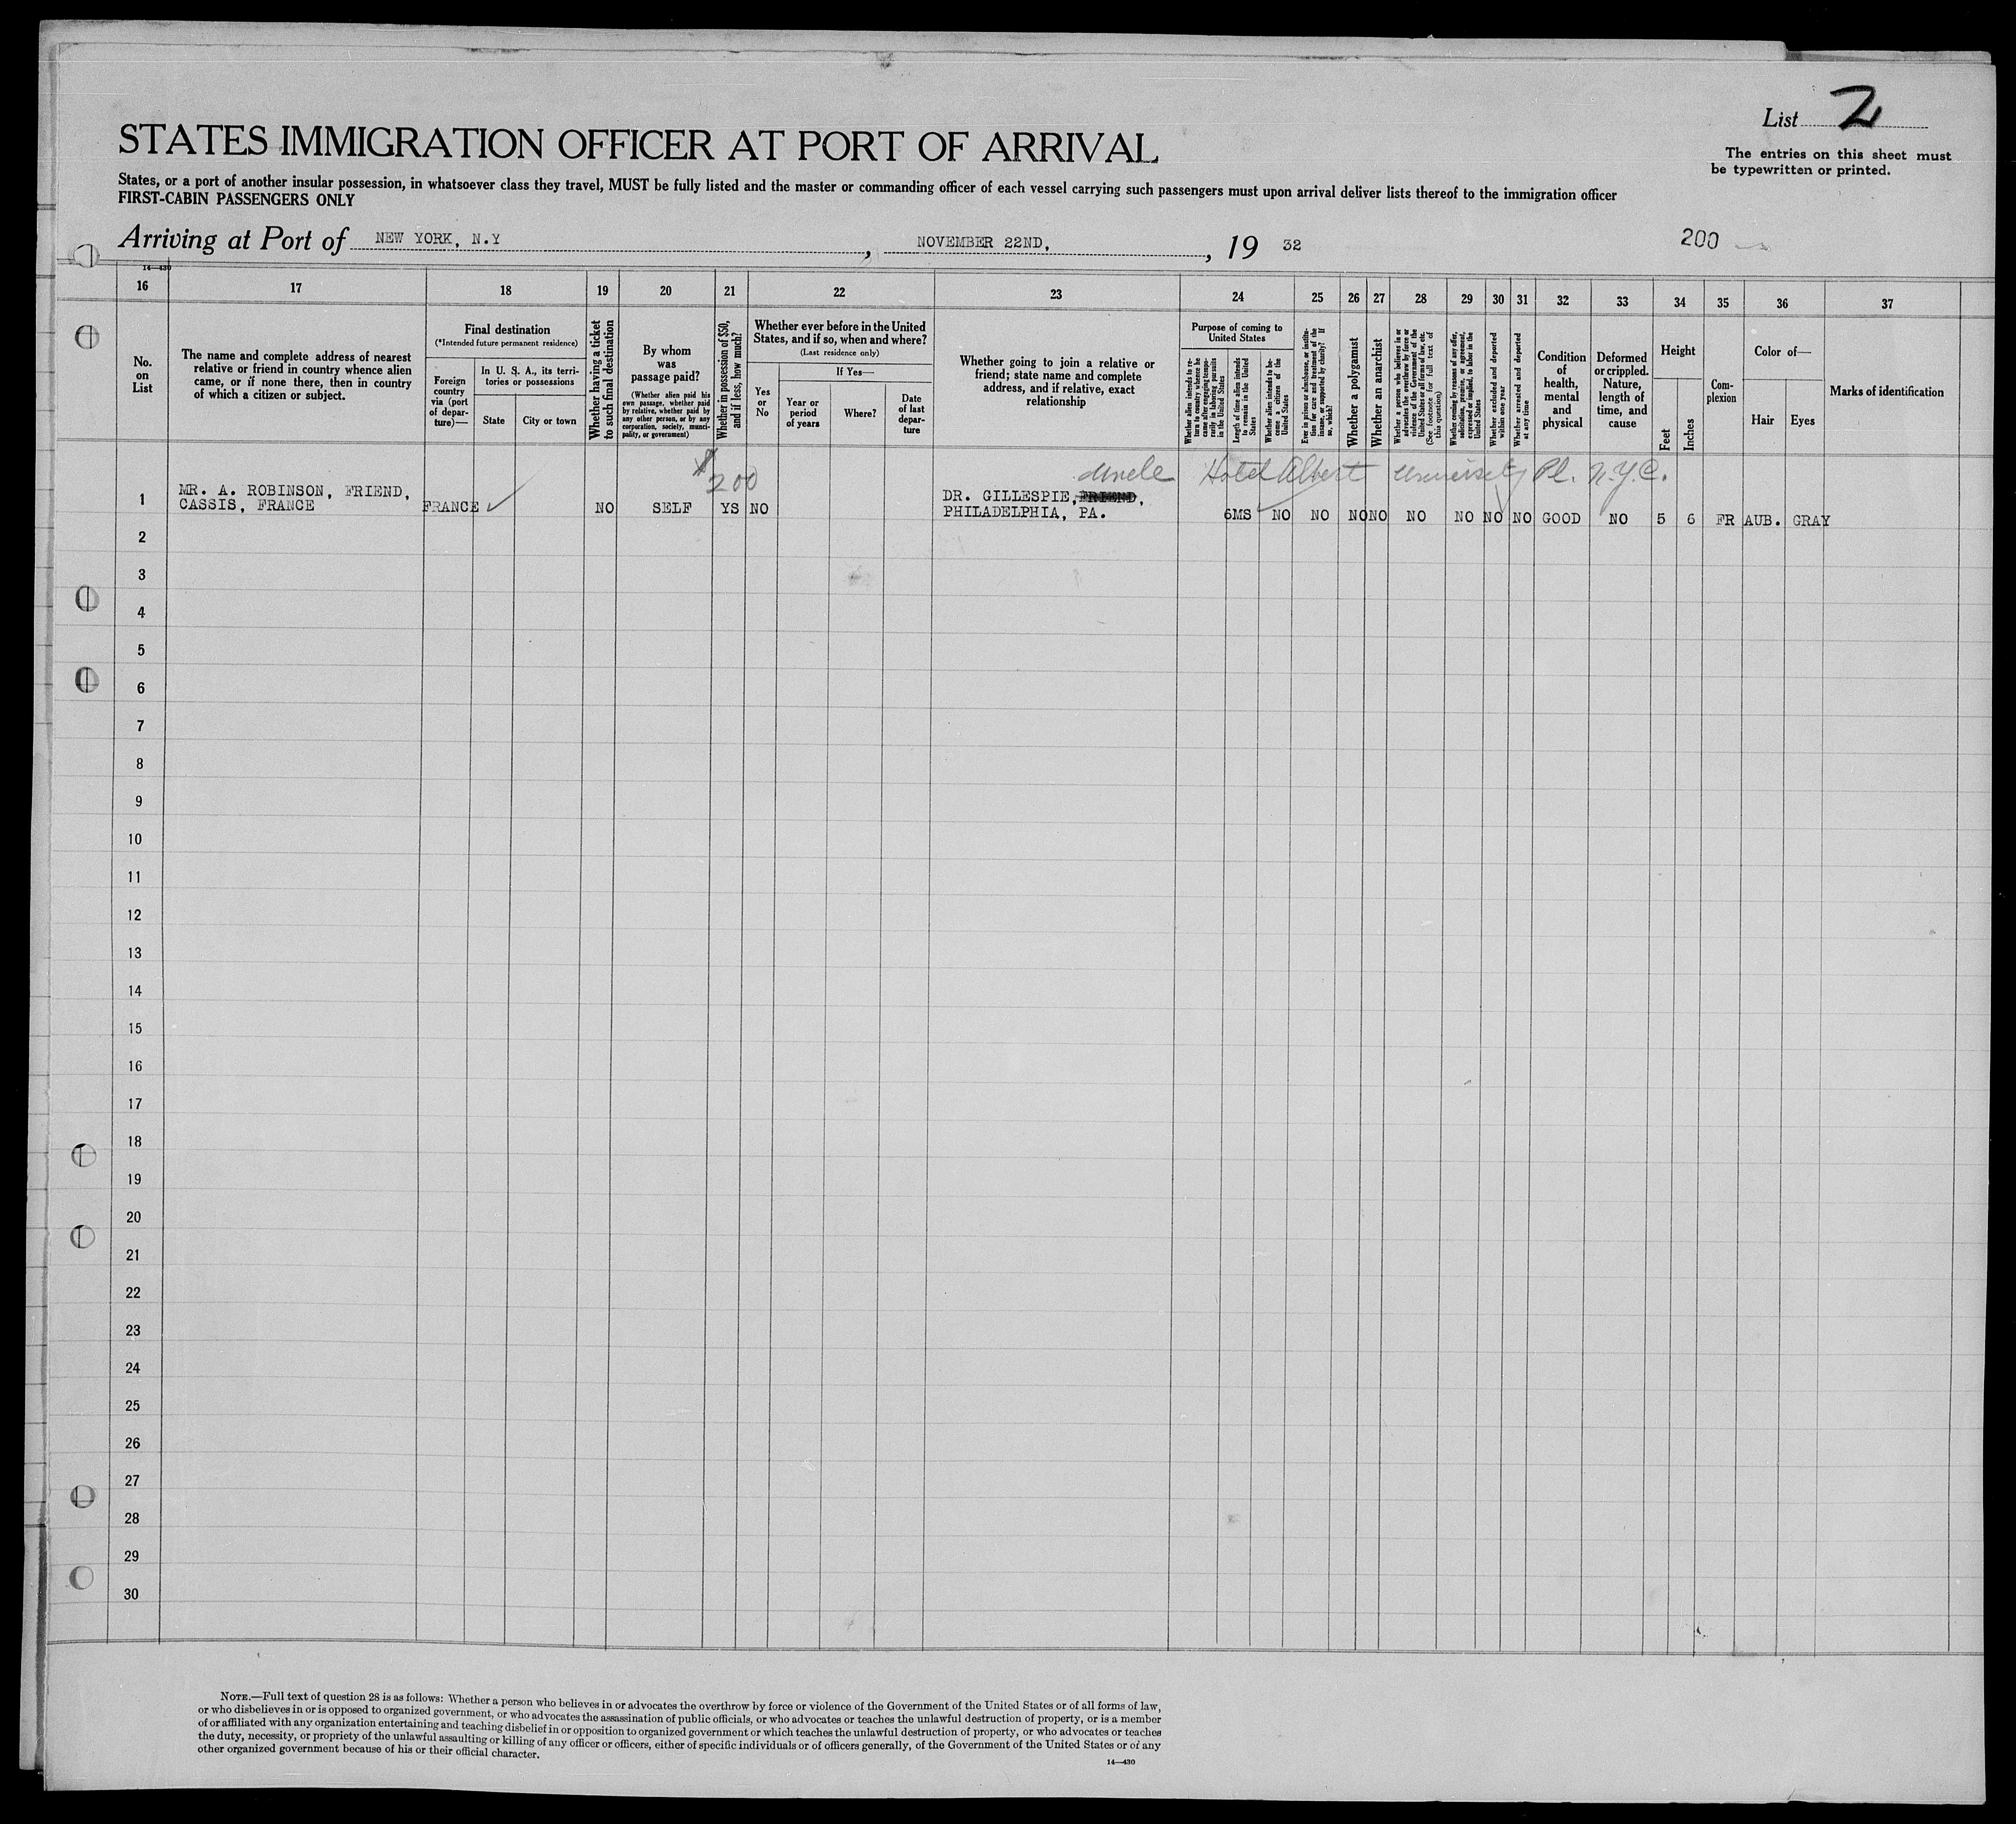 List 2
STATES IMMIGRATION OFFICER AT PORT OF ARRIVAL
The entries on this sheet must
be typewritten or printed.
States, or a port of another insular possession, in whatsoever class they travel, MUST be fully listed and the master or commanding officer of each vessel carrying such passengers must upon arrival deliver lists thereof to the immigration officer
FIRST-CABIN PASSENGERS ONLY
Arriving at Port of NEW YORK, N.Y, NOVEMBER 22ND, , 19 32
200
14—430
16 17 18 19 20 21 22 23 24 25 26 27 28 29 30 31 32 33 34 35 36 37
No.
on
List
The name and complete address of nearest
relative or friend in country whence alien
came, or if none there, then in country
of which a citizen or subject.
Final destination
(*Intended future permanent residence)
Foreign
country
via (port
of depar-
ture)—
In U. S. A., its terri-
tories or possessions
State
City or town
Whether having a ticket
to such final destination
By whom
was
passage paid?
(Whether alien paid his
own passage, whether paid
by relative, whether paid by
any other person, or by any
corporation, society, munici-
pality, or government)
Whether in possession of $50,
and if less, how much?
Whether ever before in the United
States, and if so, when and where?
(Last residence only)
Yes
or
No
If Yes—
Year or
period
of years
Where?
Date
of last
depar-
ture
Whether going to join a relative or
friend; state name and complete
address, and if relative, exact
relationship
Purpose of coming to
United States
Whether alien intends to re-
turn to country whence he
came after engaging tempo-
rarily in laboring pursuits
in the United States
Length of time alien intends
to remain in the United
States
Whether alien intends to be-
come a citizen of the
United States
Ever in prison or almshouse, or institu-
tion for care and treatment of the
insane, or supported by charity? If
so, which?
Whether a polygamist
Whether an anarchist
Whether a person who believes in or
advocates the overthrow by force or
violence of the Government of the
United States or all forms of law, etc.
(See footnote for full text of
this question)
Whether coming by reasons of any offer,
solicitation, promise, or agreement,
expressed or implied, to labor in the
United States
Whether excluded and deported
within one year
Whether arrested and deported
at any time
Condition
of
health,
mental
and
physical
Deformed
or crippled.
Nature,
length of
time, and
cause
Height
Feet
Inches
Com-
plexion
Color of—
Hair
Eyes
Marks of identification
$
200
uncle Hotel Albert University Pl. N.Y.C.
1 MR. A. ROBINSON, FRIEND,
CASSIS, FRANCE
FRANCE ✓ NO SELF YS NO
DR. GILLESPIE, FRIEND,
PHILADELPHIA, PA.
6MS NO NO NO NO NO NO NO NO GOOD NO 5 6 FR AUB. GRAY
2
3
4
5
6
7
8
9
10
11
12
13
14
15
16
17
18
19
20
21
22
23
24
25
26
27
28
29
30
NOTE.—Full text of question 28 is as follows: Whether a person who believes in or advocates the overthrow by force or violence of the Government of the United States or of all forms of law,
or who disbelieves in or is opposed to organized government, or who advocates the assassination of public officials, or who advocates or teaches the unlawful destruction of property, or is a member
of or affiliated with any organization entertaining and teaching disbelief in or opposition to organized government or which teaches the unlawful destruction of property, or who advocates or teaches
the duty, necessity, or propriety of the unlawful assaulting or killing of any officer or officers, either of specific individuals or of officers generally, of the Government of the United States or of any
other organized government because of his or their official character.
14—430